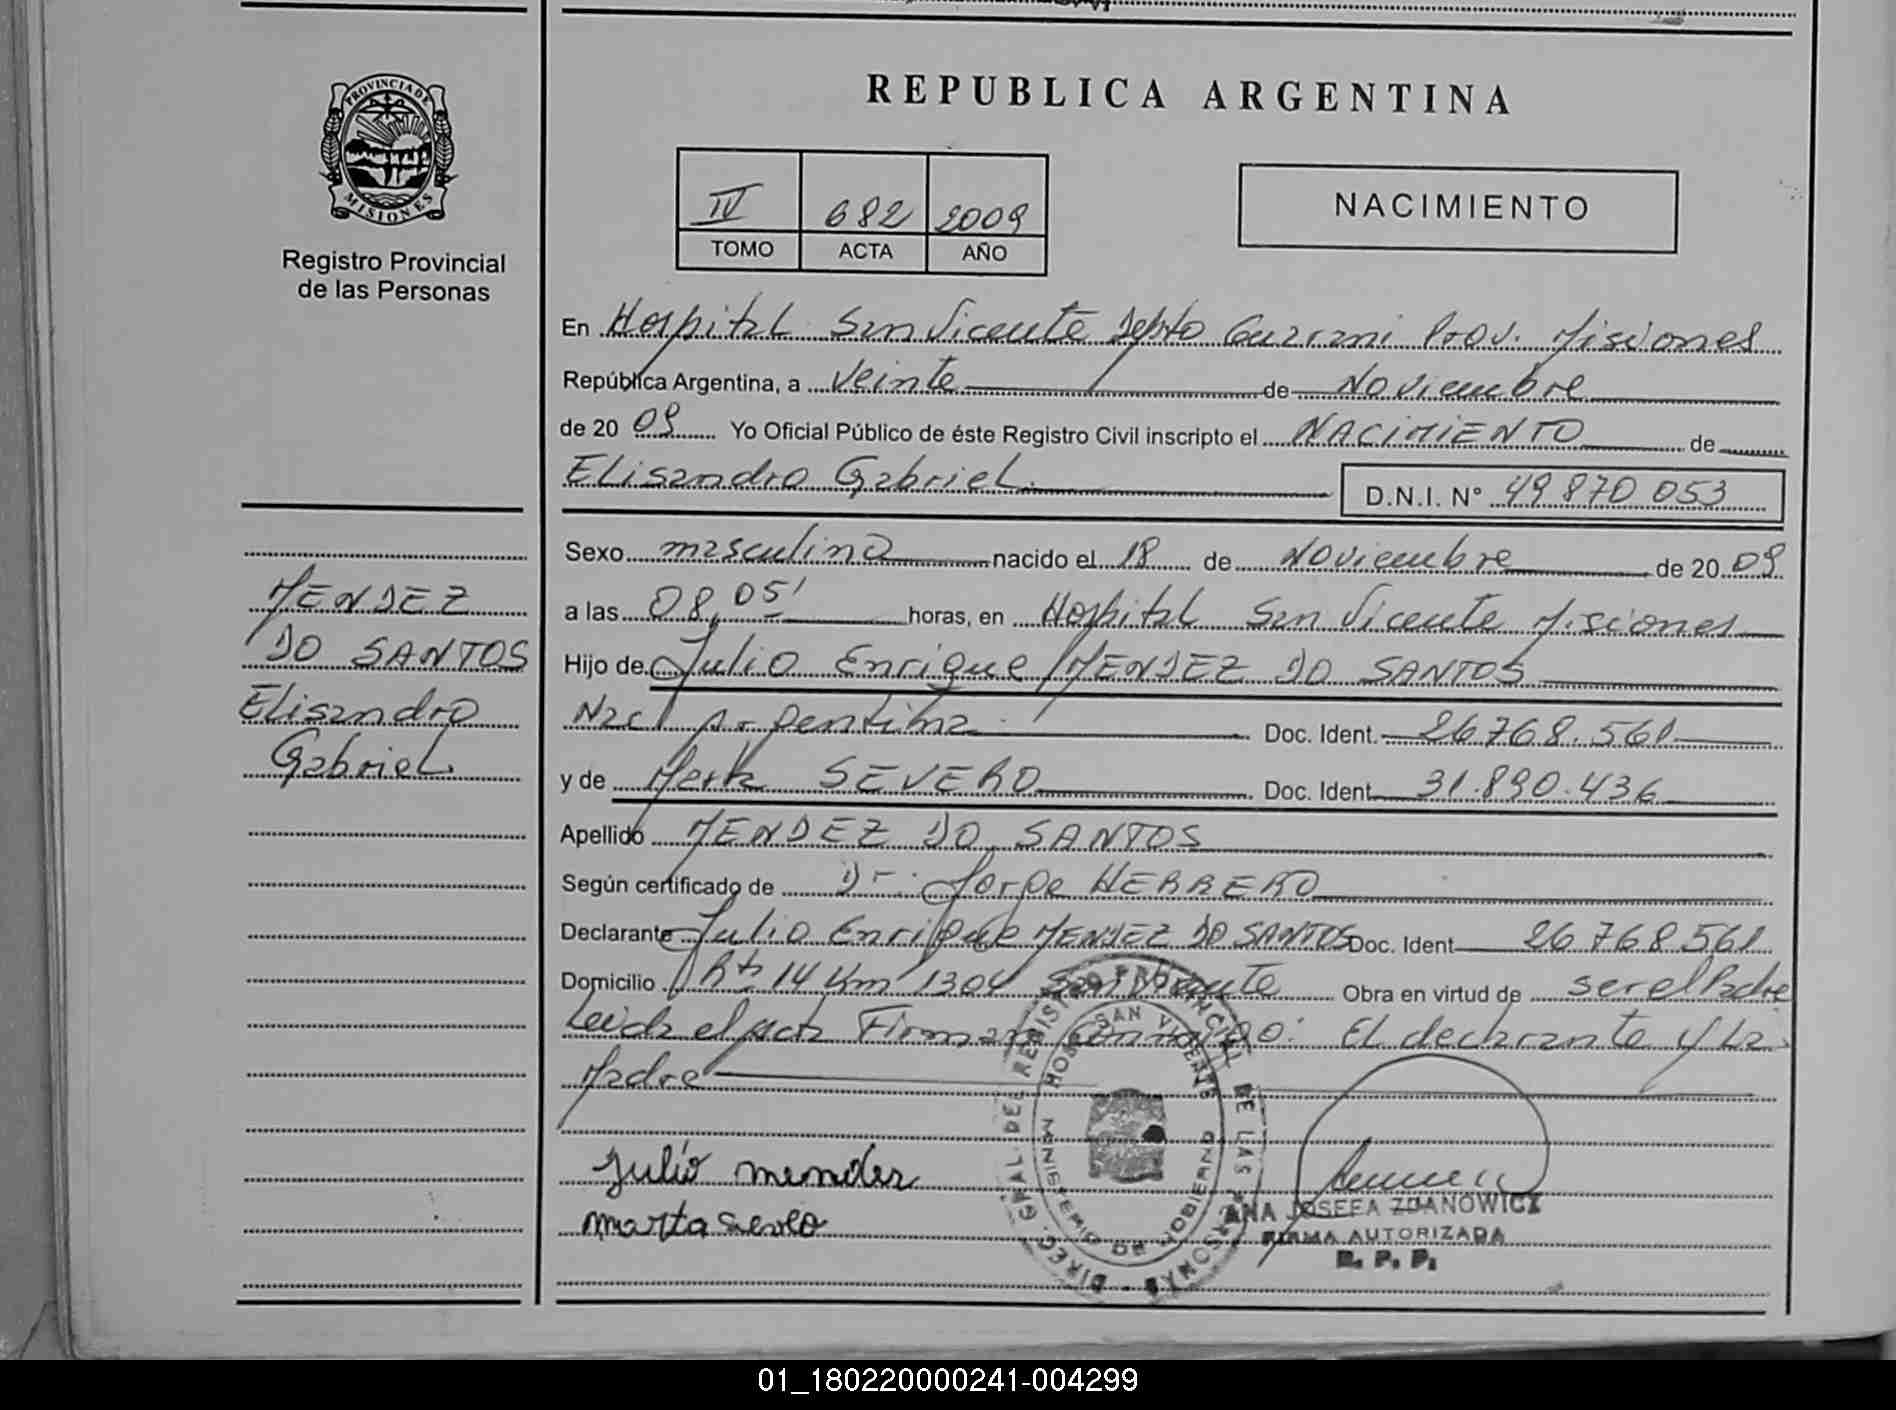 REPUBLICA ARGENTINA
PROVINCIA DE
MISIONES
Registro Provincial
de las Personas
IV 682 2009
TOMO ACTA AÑO
NACIMIENTO
En Hospital San Vicente Depto Guarani Prov. Misiones
República Argentina, a Veinte de Noviembre
de 2009 Yo Oficial Público de éste Registro Civil inscripto el NACIMIENTO de
Elisandro Gabriel D.N.I. Nº 49 870 053
Sexo masculino nacido el 18 de Noviembre de 2009
a las 08,05' horas, en Hospital San Vicente Misiones
Hijo de Julio Enrique MENDEZ DO SANTOS
Nacl Argentina Doc. Ident. 26768.561
y de SEVERO Doc. Ident 31.890.436
Apellido MENDEZ DO SANTOS
Según certificado de Dr. Jorge HERRERO
Declarante Julio Enrique MENDEZ DO SANTOS Doc. Ident 26 768 561
Domicilio Rta 14 Km 1304 San Vicente Obra en virtud de ser el Padre
Leida el acta Firman conmigo: El declarante y La
Madre
MENDEZ
DO SANTOS
Elisandro
Gabriel
Julio mendez
marta severo
DIREC. GRAL. DEL REGISTRO PROVINCIAL DE LAS PERSONAS
HOSP. SAN VICENTE
MINISTERIO DE GOBIERNO
ANA JOSEFA ZDANOWICZ
FIRMA AUTORIZADA
R. P. P.
01_180220000241-004299